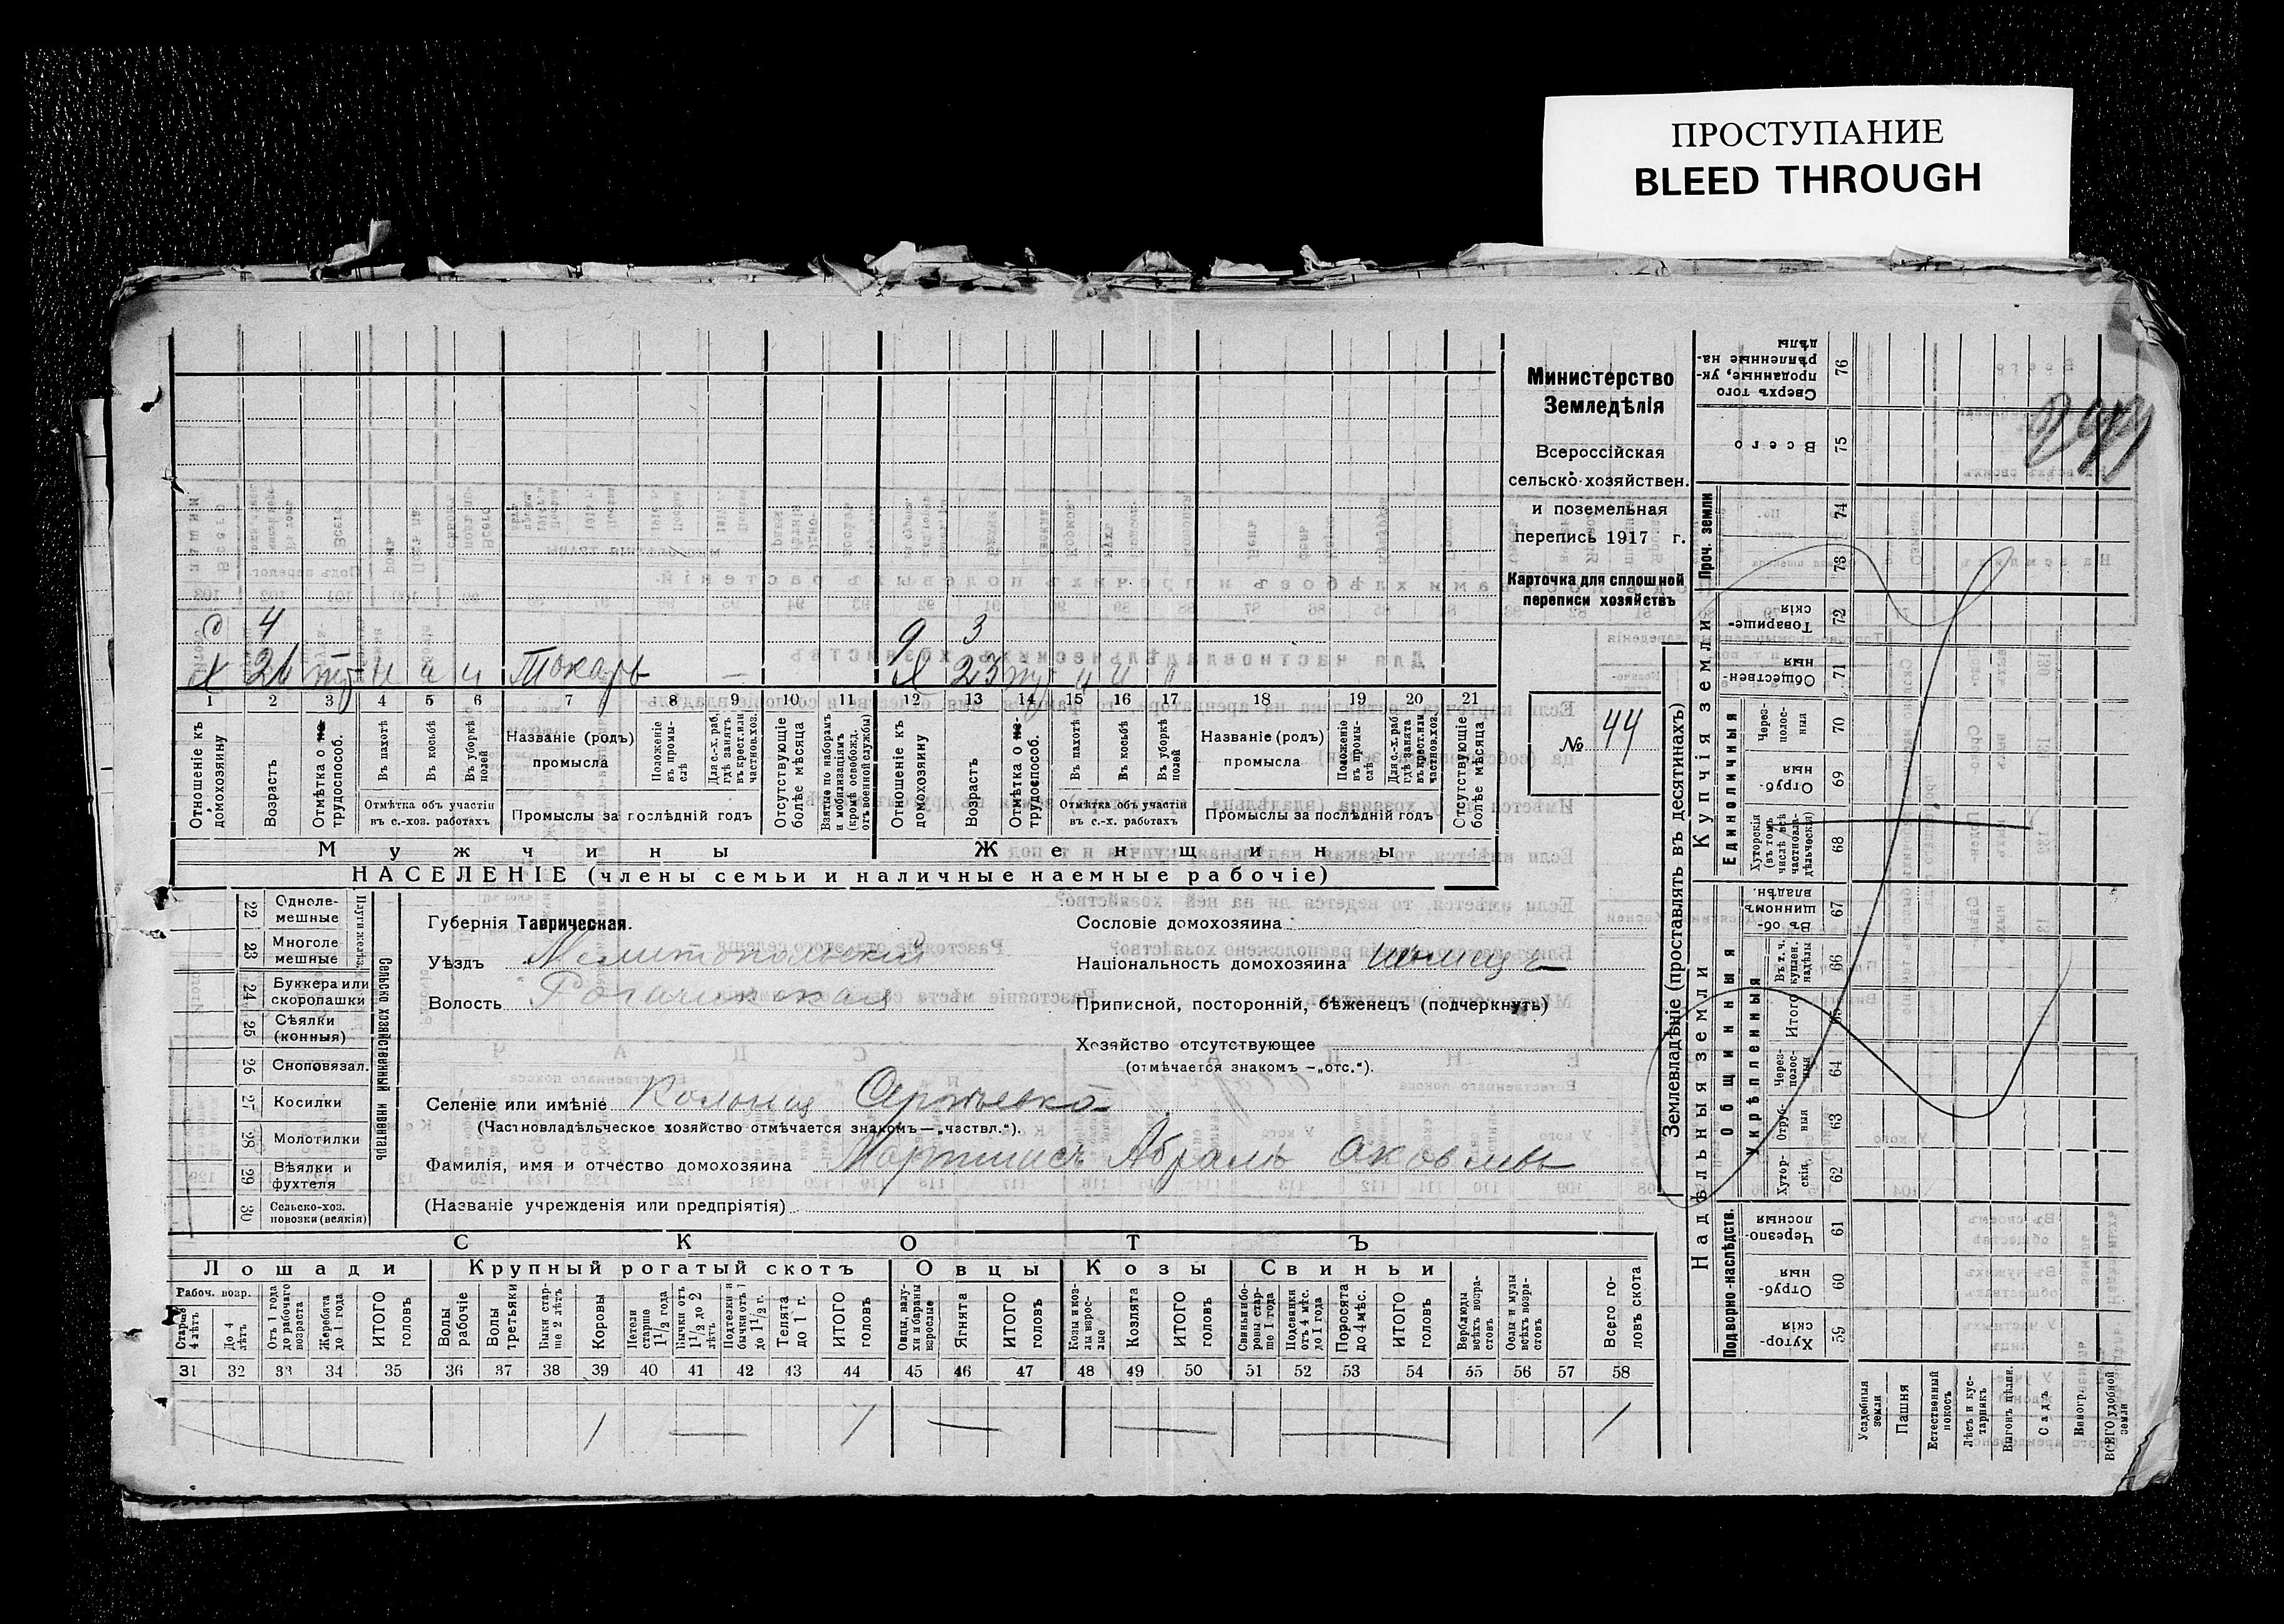 ПРОСТУПАНИЕ
BLEED THROUGH
Министерство
Земледѣлія
Всероссійская
сельско-хозяйствен.
и поземельная
перепись 1917 г.
Карточка для сплошней
переписи хозяйствъ
№ 44
с 4
9 3
26 Токарь —
23
1 2 3 4 5 6 7 8 9 10 11 12 13 14 15 16 17 18 19 20 21
Отношеніе къ домохозяину
Возрастъ
Отмѣтка о не-трудоспособ.
Въ пахотѣ
Въ косьбѣ
Въ уборкѣ полей
Отмѣтка объ участіи въ с.-хоз. работахъ
Названіе (родъ) промысла
Положеніе въ промы-слѣ
Для с.-х. раб. гдѣ занятъ въ крест. или частнов. хоз.
Промыслы за послѣдній годъ
Отсутствующіе болѣе мѣсяца
Взятые по наборамъ и мобилизаціямъ (кромѣ освобожд. отъ военной службы)
Отношеніе къ домохозяину
Возрастъ
Отмѣтка о не-трудоспособ.
Въ пахотѣ
Въ косьбѣ
Въ уборкѣ полей
Отмѣтка объ участіи въ с.-х. работахъ
Названіе (родъ) промысла
Положеніе въ промы-слѣ
Для с.-х. раб. гдѣ занята въ крест. или частнов. хоз.
Промыслы за послѣдній годъ
Отсутствующіе болѣе мѣсяца
Мужчины
Женщины
НАСЕЛЕНІЕ (члены семьи и наличные наемные рабочіе)
22 Одноле-мешные
23 Многоле мешные
Плуги желѣз.
24 Буккера или скоропашки
25 Сѣялки (конныя)
26 Сноповязал.
27 Косилки
28 Молотилки
29 Вѣялки и фухтеля
30 Сельско-хоз. повозки (всякія)
Сельско хозяйственный инвентарь
Губернія Таврическая.
Уѣздъ Мелитопольскій
Волость Рогачикская
Сословіе домохозяина
Національность домохозяина
Приписной, посторонній, бѣженецъ (подчеркнуть)
Хозяйство отсутствующее
(отмѣчается знакомъ —„отс.“).
Селеніе или имѣніе Колонія Сергѣевка
(Частновладѣльческое хозяйство отмѣчается знакомъ—„частвл.“).
Фамилія, имя и отчество домохозяина Мартинсъ Абрамъ Яковлев
(Названіе учрежденія или предпріятія)
СКОТЪ
Лошади Крупный рогатый скотъ Овцы Козы Свиньи
Рабоч. возр.
Старше 4 лѣтъ
До 4 лѣтъ
Отъ 1 года до рабочаго возраста
Жеребята до 1 года
ИТОГО головъ
Волы рабочіе
Волы третьяки
Быки стар-ше 2 лѣтъ
Коровы
Нетели старше 1 1/2 года
Бычки отъ 1 1/2 до 2 лѣтъ
Подтелки и бычки отъ 1 до 1 1/2 г.
Телята до 1 г.
ИТОГО головъ
Овцы, валу-хи и бараны взрослые
Ягнята
ИТОГО головъ
Козы и коз-лы взрос-лые
Козлята
ИТОГО головъ
Свиньи и бо-ровы стар-ше 1 года
Подсвинки отъ 4 мѣс. до 1 года
Поросята до 4 мѣс.
ИТОГО головъ
Верблюды всѣхъ возра-стовъ
Ослы и мулы всѣхъ возра-стовъ
Всего го-ловъ скота
31 32 33 34 35 36 37 38 39 40 41 42 43 44 45 46 47 48 49 50 51 52 53 54 55 56 57 58
1 — 1 — — — 1
Землевладѣніе (проставлять въ десятинахъ)
Надѣльныя земли
Купчія земли
Проч. земли
Подворно-наслѣдств.
Общинныя
Укрѣпленныя
Единоличныя
Сверхъ того проданные, ук-рѣпленные на-дѣлы 76
Всего 75
74
73
Товарище-скія 72
Обществен-ныя 71
Через-полос-ныя 70
Отруб-ныя 69
Хуторскія (въ томъ числѣ всѣ частновла-дѣльческія) 68
Въ об-щинномъ владѣн. 67
Въ т. ч. куплен. надѣлы 66
Итого 65
Через-полос-ныя 64
Отруб-ныя 63
Хутор-скія 62
Черезпо-лосныя 61
Отруб-ныя 60
Хутор-скія 59
Усадебныя земли
Пашня
Естественный покосъ
Лѣсъ и кус-тарникъ
Выгонъ цѣлин.
Садъ
Виногр.
ВСЕГО удобной земли